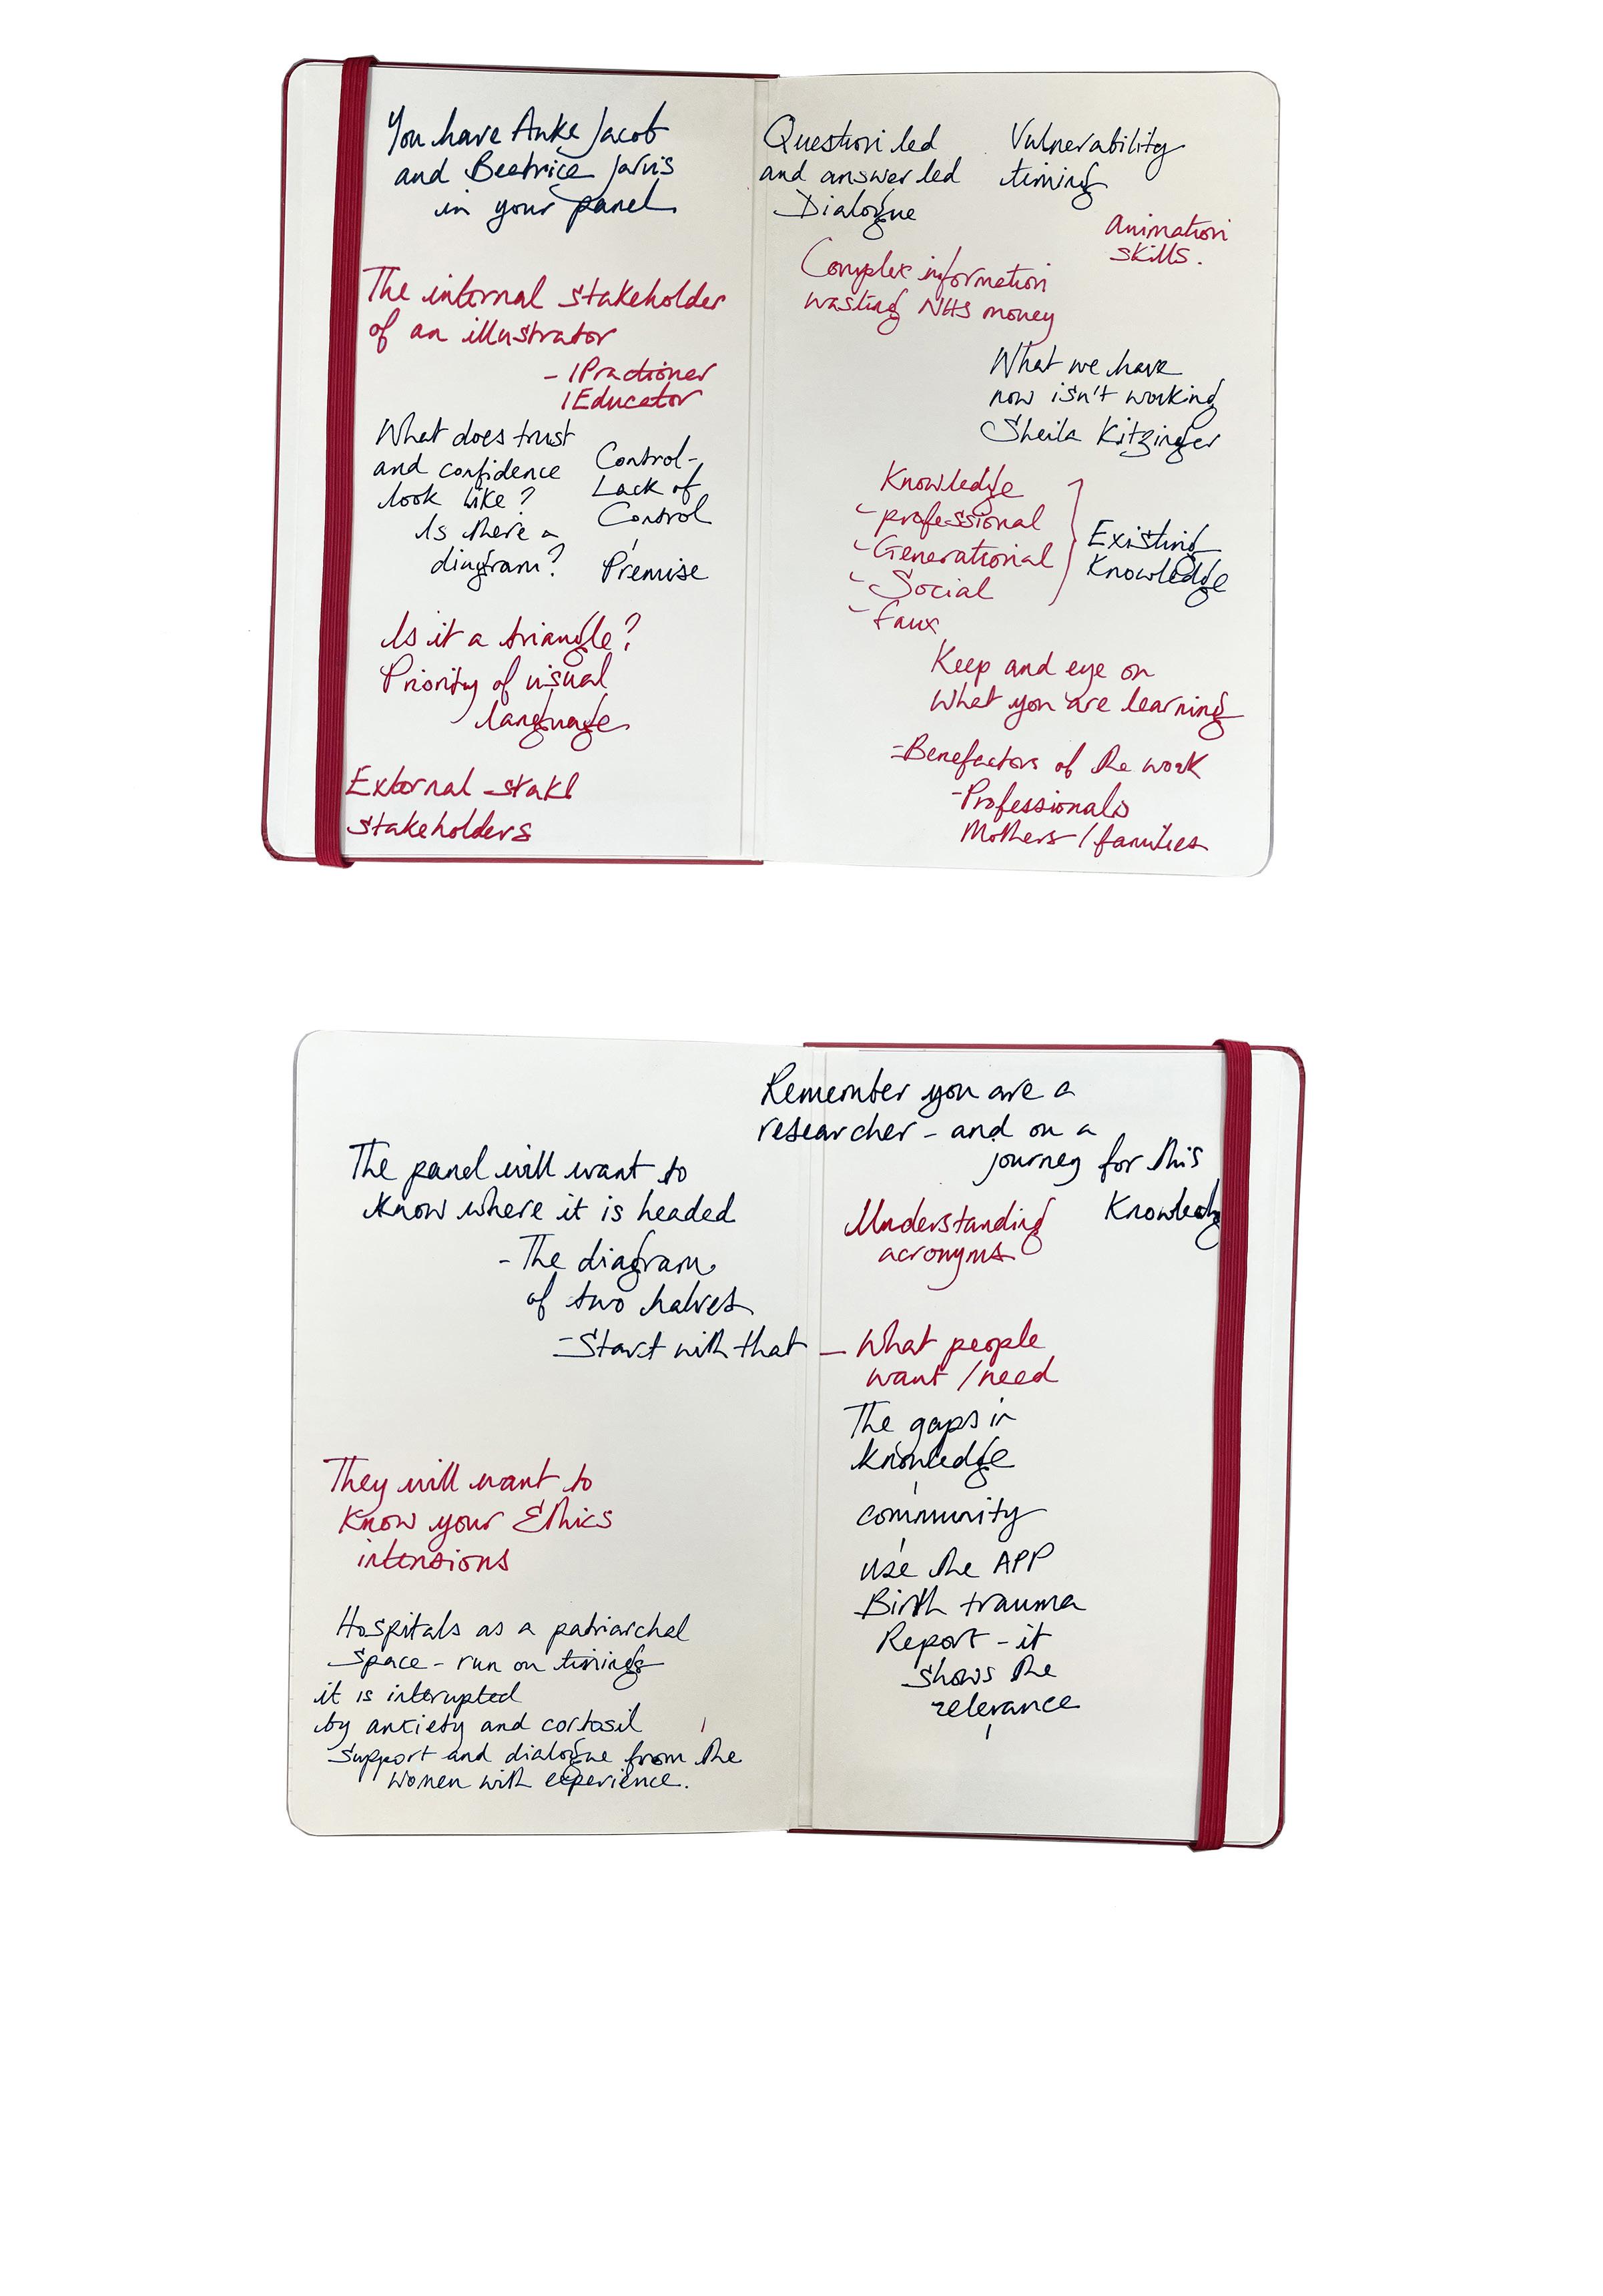 You have Anke Jacob
and Beatrice Jarvis
in your panel
The internal stakeholder
of an illustrator
- / Practioner
/ Educator
What does trust
and confidence
look like?
Is there a
diagram?
Control -
Lack of
Control
Premise
Is it a triangle?
Priority of visual
language
External stakl
stakeholders
Question led
and answer led
Dialogue
Vulnerability
timing
Animation
skills.
Complex information
wasting NHS money
What we have
now isn't working
Sheila Kitzinger
Knowledge
- professional
- Generational
- Social
- faux
Existing
Knowledge
Keep and eye on
what you are learning
- Benefactors of the work
- Professionals
Mothers / families
The panel will want to
know where it is headed
- The diagram
of two halves
- Start with that
They will want to
know your Ethics
intensions
Hospitals as a patriarchal
space - run on timings
it is interupted
by anxiety and cortosil
support and dialogue from the
women with experience.
Remember you are a
researcher - and on a
journey for this
Knowledg
Understanding
acronyms
- What people
want / need
The gaps in
knowledge
community
use the APP
Birth trauma
Report - it
shows the
relevance